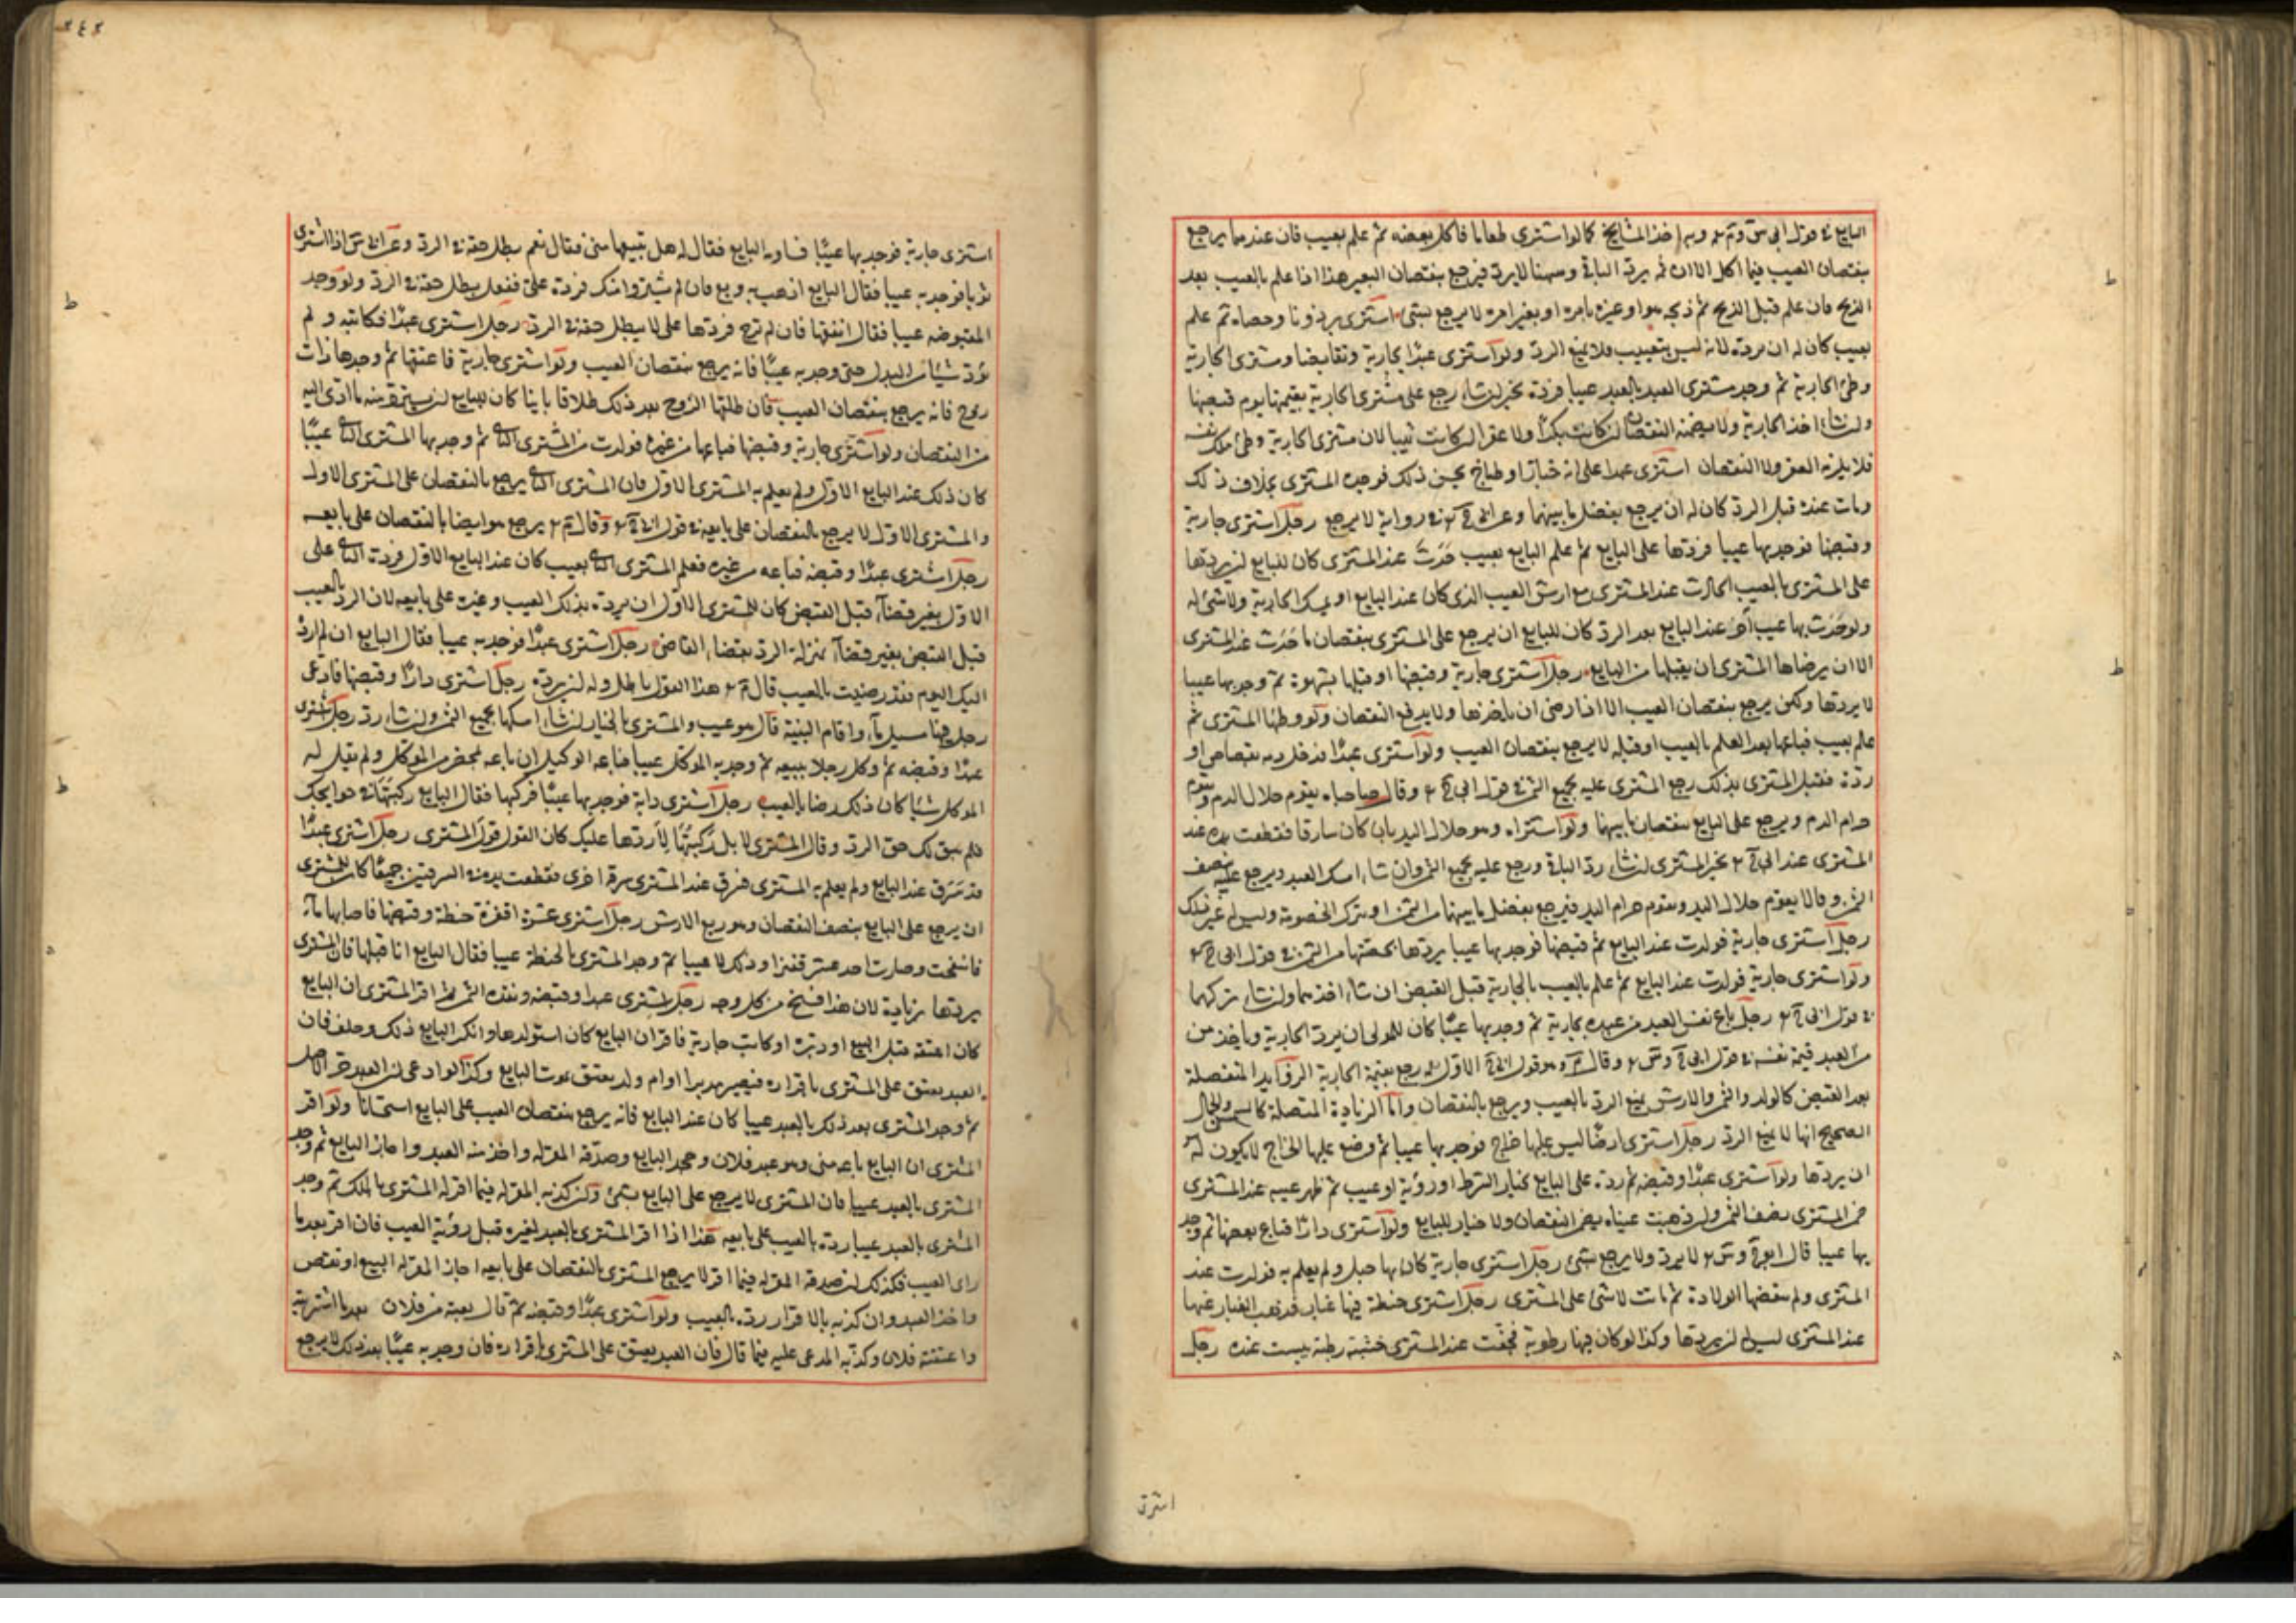 البايع في قول ابي س و م وبه اخذ المشايخ كما لو اشترى طعاما فاكل بعضه ثم علم بعيب فان عندهما يرجع
بنقصان العيب فيما اكل الا ان م يرد الباقي وسهنا لا يرد فيرجع بنقصان البعير هذا اذا علم بالعيب بعد
الذبح فان علم قبل الذبح ثم ذبحه هوا وغيره بامره او بغير امره لا يرجع بشئ استرى برذونا وخصاه ثم علم
بعيب كان له ان يرده لانه ليس بتعييب فلا يمنع الرد ولو استرى عبدا بجارية وتقابضا ومشتري الجارية
وطئ الجارية ثم وجد مشترى العبد بالعبد عيبا فرده يخير ان شاء رجع على مشترى الجارية بقيمتها يوم قبضها
وان شاء اخذ الجارية ولا يضمنه النقصان ان كانت بكرا ولا عقرا ان كانت ثيبا لان مشترى الجارية وطئ ملك نفسه
فلا يلزمه العقر ولا النقصان استرى عبدا على انه خباز او طباخ يحسن ذلك فوجده المسترى بخلاف ذلك
ومات عنده قبل الرد كان له ان يرجع بفضل ما بينهما وعن ابي ح في رواية لا يرجع رجل استرى جارية
وقبضها فوجد بها عيبا فردها على البايع ثم علم البايع بعيب حدث عند المسترى كان للبايع ان يردها
على المسترى بالعيب الحادث عند المسترى مع ارش العيب الذى كان عند البايع او يمسك الجارية ولا شئ له
ولو حدث بها عيب آخر عند البايع بعد الرد كان للبايع ان يرجع على المسترى بنقصان ما حدث عند المسترى
الا ان يرضاها المشترى ان يقبلها من البايع رجل استرى جارية وقبضها او قبلها بشهوة ثم وجد بها عيبا
لا يردها ولكن يرجع بنقصان العيب الا اذا رضى ان ياخذها ولا يدفع النقصان ولو وطئها المسترى ثم
علم بعيب فباعها بعد العلم بالعيب او قبله لا يرجع بنقصان العيب ولو استرى عبدا قد حل دمه بقصاص او
ردة فقتل المسترى بذلك رجع المسترى عليه بجميع الثمن في قول ابي ح وقال صاحباه يقوم حلال الدم ويقوم
حرام الدم ويرجع على البايع بنقصان ما بينهما ولو استراه وهو حلال اليد بان كان سارقا فقطعت يده عند
المسترى عند ابي ح يخير المسترى ان شاء رد الباقي ورجع عليه بجميع الثمن وان شاء امسك العبد ويرجع عليه بنصف
الثمن وقالا يقوم حلال اليد ويقوم حرام اليد فيرجع بفضل ما بينهما من الثمن او يترك الخصومة وليس له غير ذلك
رجل استرى جارية فولدت عند البايع ثم قبضها فوجد بها عيبا يردها بحصتها من الثمن في قول ابي ح
ولو استرى جارية فولدت عند البايع ثم علم بالعيب بالجارية قبل القبض ان شاء اخذهما وان شاء تركهما
في قول ابي ح رجل باع نفس العبد من عبده بجارية ثم وجد بها عيبا كان للمولى ان يرد الجارية وياخذ من
من العبد قيمة نفسه في قول ابي ح و س وقال م وهو قول ابي ح الاول يرجع بقيمة الجارية الزوايد المنفصلة
بعد القبض كالولد والثمر والارش يمنع الرد بالعيب ويرجع بالنقصان واما الزيادة المتصلة كالسمن والجمال
الصحيح انها لا يمنع الرد رجل استرى ارضا ليس عليها خراج فوجد بها عيبا ثم وضع عليها الخراج لا يكون له
ان يردها ولو استرى عبدا وقبضه ثم رده على البايع بخيار الشرط او رؤية او عيب ثم ظهر عيبه عند المشترى
ضمن المسترى نصف الثمن وان ذهبت عيناه يضمن النقصان ولا خيار للبايع ولو استرى دارا فباع بعضها ثم وجد
بها عيبا قال ابو ح و س لا يرد ولا يرجع بشئ رجل استرى جارية كان بها حبل ولم يعلم به فولدت عند
المسترى ولم ينقصها الولادة ثم ماتت لا شئ على المسترى رجل استرى حنطة فيها غبار فذهب الغبار عنها
عند المسترى ليس له ان يردها وكذا لو كان فيها رطوبة فجفت عند المسترى خشبة رطبة يبست عنده رجل
اشترى
٢٤٢
استرى جارية فوجد بها عيبا فساومه البايع فقال له هل تبيعها منى فقال نعم بطل حقه في الرد وعن ابي س اذا اشترى
ثوبا فوجد به عيبا فقال البايع اذهب به وبع فان لم يشتروا منك فرده على ففعل يبطل حقه في الرد ولو وجد
المقبوضه عيبا فقال انفقها فان لم ترج فردها على لا يبطل حقه في الرد رجل استرى عبدا فكاتبه ولم
يؤد شيئا من البدل حتى وجد به عيبا فانه يرجع بنقصان العيب ولو استرى جارية فاعتقها ثم وجدها ذات
زوج فانه يرجع بنقصان العيب فان طلقها الزوج بعد ذلك طلاقا باينا كان للبايع ان يسترد منه ما ادى اليه
من النقصان ولو استرى جارية وقبضها فباعها من غيره فولدت من المشترى الثاني ثم وجد بها المشترى الثاني عيبا
كان ذلك عند البايع الاول ولم يعلم به المشترى الاول فان المشترى الثاني يرجع بالنقصان على المشترى الاول
والمشترى الاول لا يرجع بالنقصان على بايعه في قول ابي ح وقال م يرجع هو ايضا بالنقصان على بايعه
رجل اشترى عبدا وقبضه فباعه من غيره فعلم المشترى الثاني بعيب كان عند البايع الاول فرده الثاني على
الاول بغير قضاء قبل القبض كان للمشترى الاول ان يرده بذلك العيب وغيره على بايعه لان الرد بالعيب
قبل القبض بغير قضاء بمنزلة الرد بقضاء القاضى رجل اشترى عبدا فوجد به عيبا فقال البايع ان لم ارد
اليك اليوم فقد رضيت بالعيب قال م هذا القول باطل وله ان يرده رجل اشترى دارا وقبضها فادعى
رجل فيها مسيل ماء واقام البينة قال هو عيب والمشترى بالخيار ان شاء امسكها بجميع الثمن وان شاء رد رجل اشترى
عبدا وقبضه ثم وكل رجلا ببيعه ثم وجد به الموكل عيبا فباعه الوكيل ان باعه بمحضر من الموكل ولم يقل له
الموكل شيئا كان ذلك رضا بالعيب رجل اشترى دابة فوجد بها عيبا فركبها فقال البايع ركبتها في حوايجك
فلم يبق لك حق الرد وقال المشترى لا بل ركبتها لاردها عليك كان القول قول المشترى رجل اشترى عبدا
قد سرق عند البايع ولم يعلم به المشترى فسرق عند المشترى سرقة اخرى فقطعت يده في السرقتين جميعا كان للمشترى
ان يرجع على البايع بنصف النقصان وهو ربع الارش رجل استرى عشرة اقفزة حنطة وقبضها فاصابها ماء
فانتفخت وصارت احد عشر قفيزا وذلك لا عيبا ثم وجد المشترى بالحنطة عيبا فقال البايع انا اقبلها فان المشترى
يردها بزيادة لان هذا فسخ من كل وجه رجل اشترى عبدا وقبضه ونقده الثمن ثم اقر المشترى ان البايع
كان اعتقه قبل البيع او دبره او كانت جارية فاقر ان البايع كان استولدها وانكر البايع ذلك وحلف فان
العبد يعتق على المشترى باقراره فيصير مدبرا او ام ولد يعتق بموت البايع وكذا لو ادعى ان العبد حر الاصل
ثم وجد المشترى بعد ذلك بالعبد عيبا كان عند البايع فانه يرجع بنقصان العيب على البايع استحسانا ولو اقر
المشترى ان البايع باعه منى وهو عبد فلان وجحد البايع وصدقه المقر له واخذ منه العبد واجاز البايع ثم وجد
المشترى بالعبد عيبا فان المشترى لا يرجع على البايع بشئ ولو كذبه المقر له فيما اقر له المشترى بالملك ثم وجد
المشترى بالعبد عيبا رده بالعيب على بايعه هذا اذا اقر المشترى بالعبد لغيره قبل رؤية العيب فان اقر بعد ما
راى العيب فكذلك ان صدقه المقر له فيما اقر لا يرجع المشترى بالنقصان على بايعه اجاز المقر له البيع او نقص
واخذ العبد وان كذبه بالاقرار رده بالعيب ولو استرى عبدا وقبضه ثم قال بعته من فلان بعد ما اشتريته
واعتقه فلان وكذبه المدعى عليه فيما قال فان العبد يعتق على المشترى باقراره فان وجد به عيبا بعد ذلك لا يرجع